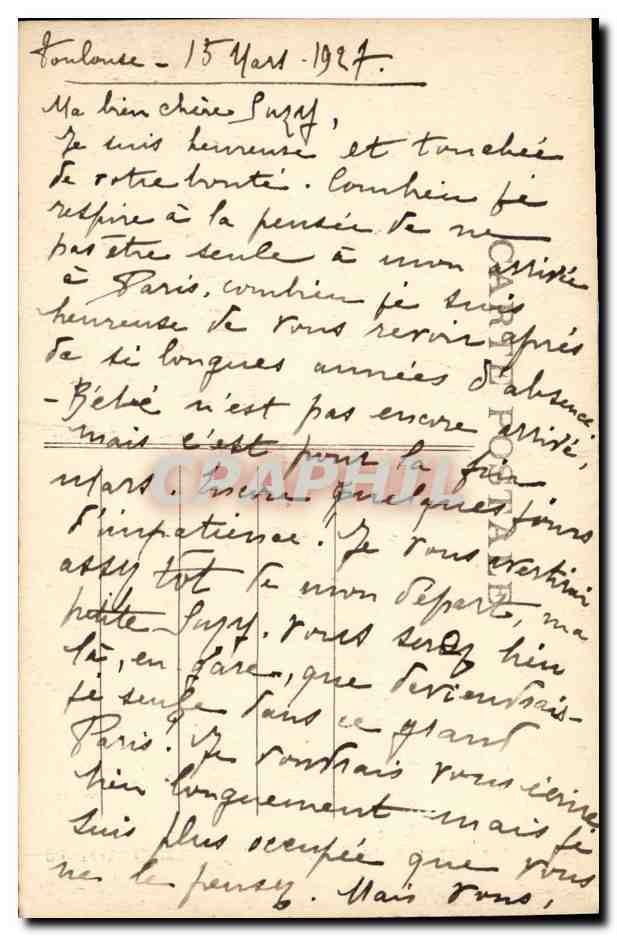 Toulouse - 15 Mars - 1927.
Ma bien chère Suzy,
Je suis heureuse et touchée
de votre bonté. Combien je
respire à la pensée de ne
pas être seule à mon arrivée
à Paris, combien je suis
heureuse de vous revoir après
de si longues années d'absence.
- Bébé n'est pas encore arrivé,
mais c'est pour la fin
Mars. Encore quelques jours
d'impatience! Je vous avertirai
assez tôt de mon départ, ma
petite Suzy. Vous serez bien
là, en gare, que deviendrais-
je seule dans ce grand
Paris? Je voudrais vous écrire
bien longuement mais je
suis plus occupée que vous
ne le pensez. Mais vous,
CARTE POSTALE
CPAPHIL